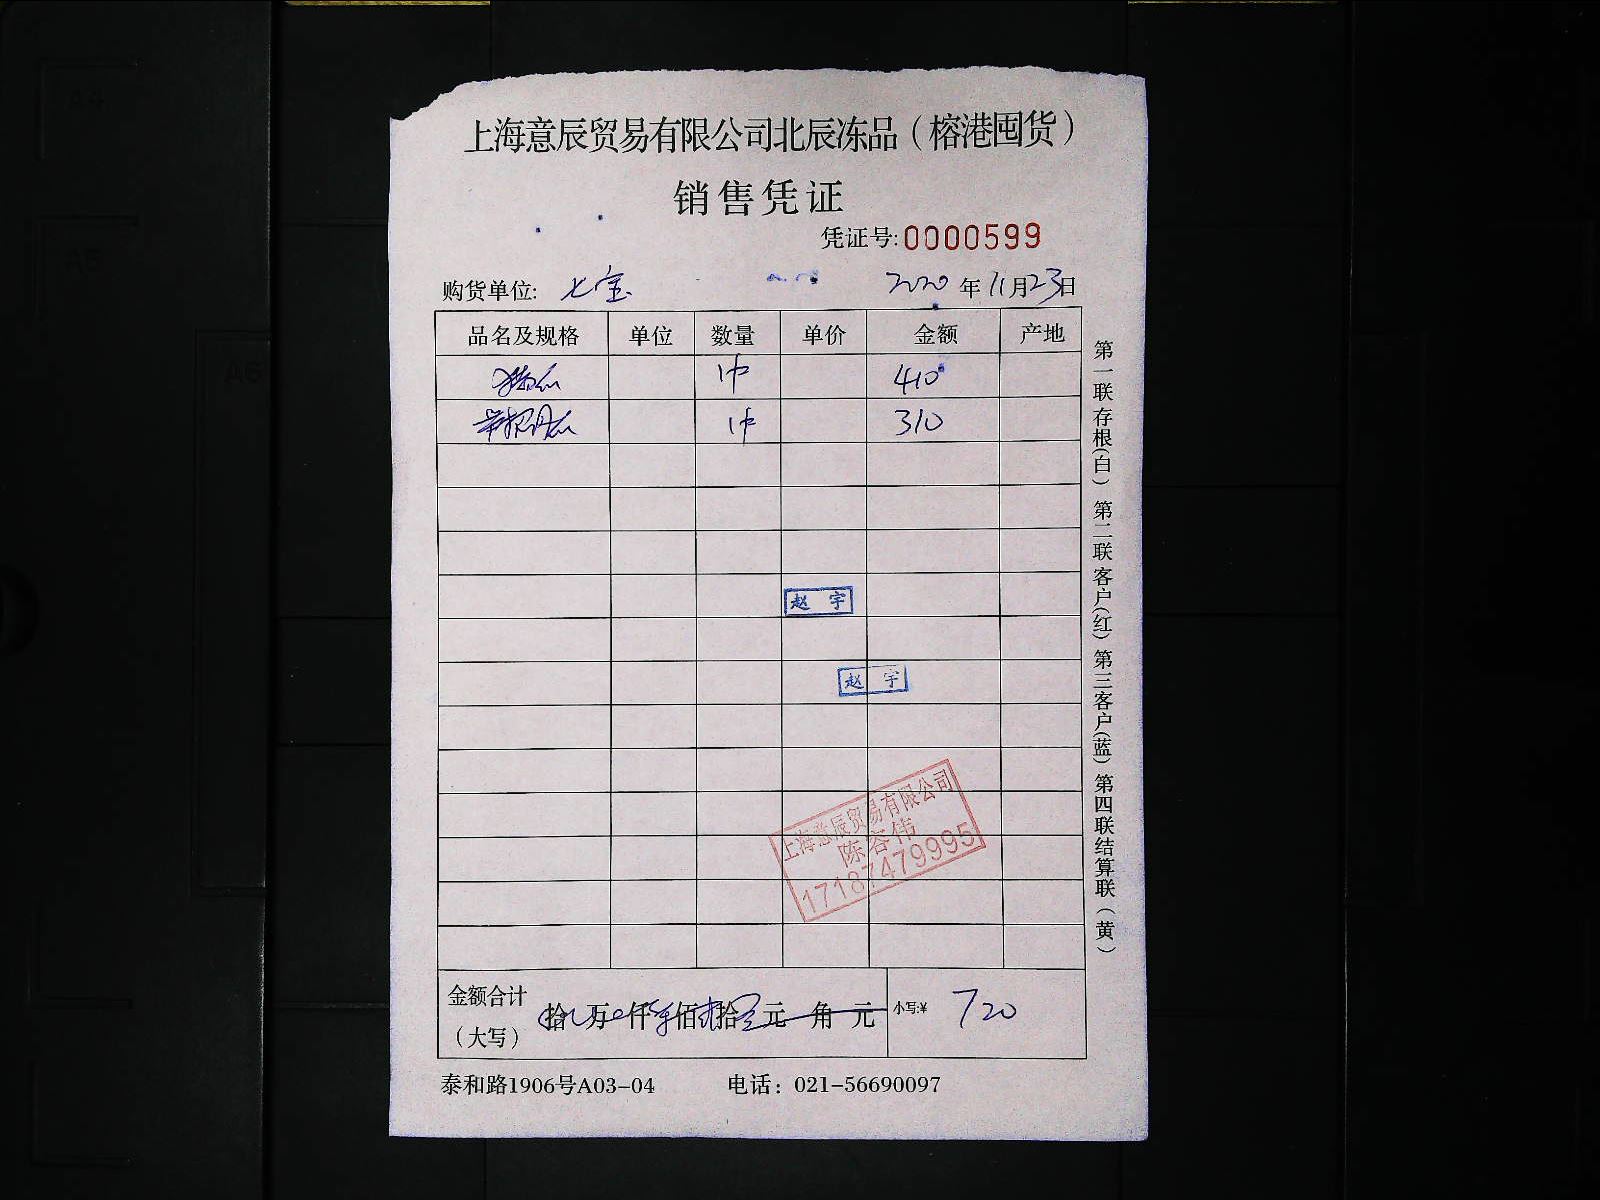 上海意辰贸易有限公司北辰冻品（榕港囤货）
销售凭证
凭证号:0000599
购货单位: 七宝 2020年11月23日
品名及规格 单位 数量 单价 金额 产地
1件 410
1件 310
赵宇
赵宇
上海意辰贸易有限公司
陈容伟
17187479995
金额合计（大写） 拾 万 仟 佰 拾 元 角 元 小写:¥ 720
泰和路1906号A03-04 电话：021-56690097
第一联存根(白) 第二联客户(红) 第三客户(蓝) 第四联结算联(黄)
A4
A5
A6